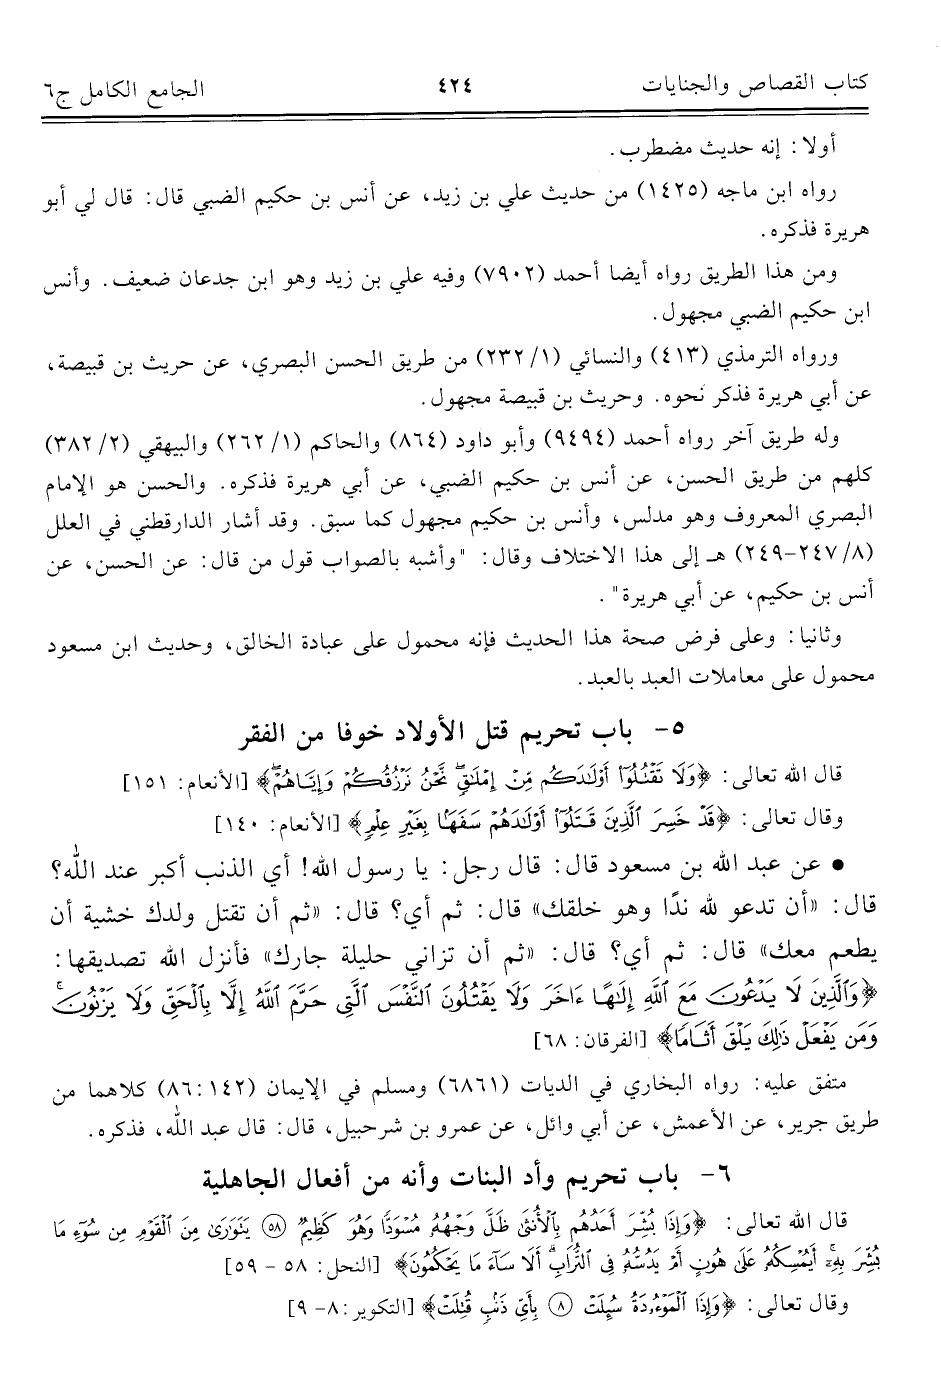 كتاب القصاص والجنايات ٤٢٤ الجامع الكامل ج٦
أولا: إنه حديث مضطرب.
رواه ابن ماجه (١٤٢٥) من حديث علي بن زيد، عن أنس بن حكيم الضبي قال: قال لي أبو
هريرة فذكره.
ومن هذا الطريق رواه أيضا أحمد (٧٩٠٢) وفيه علي بن زيد وهو ابن جدعان ضعيف. وأنس
ابن حكيم الضبي مجهول.
ورواه الترمذي (٤١٣) والنسائي (١/ ٢٣٢) من طريق الحسن البصري، عن حريث بن قبيصة،
عن أبي هريرة فذكر نحوه. وحريث بن قبيصة مجهول.
وله طريق آخر رواه أحمد (٩٤٩٤) وأبو داود (٨٦٤) والحاكم (١/ ٢٦٢) والبيهقي (٢/ ٣٨٢)
كلهم من طريق الحسن، عن أنس بن حكيم الضبي، عن أبي هريرة فذكره. والحسن هو الإمام
البصري المعروف وهو مدلس، وأنس بن حكيم مجهول كما سبق. وقد أشار الدارقطني في العلل
(٨/ ٢٤٧-٢٤٩) هـ إلى هذا الاختلاف وقال: "وأشبه بالصواب قول من قال: عن الحسن، عن
أنس بن حكيم، عن أبي هريرة".
وثانيا: وعلى فرض صحة هذا الحديث فإنه محمول على عبادة الخالق، وحديث ابن مسعود
محمول على معاملات العبد بالعبد.
٥- باب تحريم قتل الأولاد خوفا من الفقر
قال الله تعالى: ﴿وَلَا تَقْتُلُوٓا۟ أَوْلَٰدَكُم مِّنْ إِمْلَٰقٍ ۖ نَّحْنُ نَرْزُقُكُمْ وَإِيَّاهُمْ ۖ﴾ [الأنعام: ١٥١]
وقال تعالى: ﴿قَدْ خَسِرَ ٱلَّذِينَ قَتَلُوٓا۟ أَوْلَٰدَهُمْ سَفَهًۢا بِغَيْرِ عِلْمٍ﴾ [الأنعام: ١٤٠]
• عن عبد الله بن مسعود قال: قال رجل: يا رسول الله! أي الذنب أكبر عند الله؟
قال: «أن تدعو لله ندًا وهو خلقك» قال: ثم أي؟ قال: «ثم أن تقتل ولدك خشية أن
يطعم معك» قال: ثم أي؟ قال: «ثم أن تزاني حليلة جارك» فأنزل الله تصديقها:
﴿وَٱلَّذِينَ لَا يَدْعُونَ مَعَ ٱللَّهِ إِلَٰهًا ءَاخَرَ وَلَا يَقْتُلُونَ ٱلنَّفْسَ ٱلَّتِى حَرَّمَ ٱللَّهُ إِلَّا بِٱلْحَقِّ وَلَا يَزْنُونَ ۚ
وَمَن يَفْعَلْ ذَٰلِكَ يَلْقَ أَثَامًا﴾ [الفرقان: ٦٨]
متفق عليه: رواه البخاري في الديات (٦٨٦١) ومسلم في الإيمان (٨٦:١٤٢) كلاهما من
طريق جرير، عن الأعمش، عن أبي وائل، عن عمرو بن شرحبيل، قال: قال عبد الله، فذكره.
٦- باب تحريم وأد البنات وأنه من أفعال الجاهلية
قال الله تعالى: ﴿وَإِذَا بُشِّرَ أَحَدُهُم بِٱلْأُنثَىٰ ظَلَّ وَجْهُهُۥ مُسْوَدًّا وَهُوَ كَظِيمٌ ٥٨ يَتَوَٰرَىٰ مِنَ ٱلْقَوْمِ مِن سُوٓءِ مَا
بُشِّرَ بِهِۦٓ ۚ أَيُمْسِكُهُۥ عَلَىٰ هُونٍ أَمْ يَدُسُّهُۥ فِى ٱلتُّرَابِ ۗ أَلَا سَآءَ مَا يَحْكُمُونَ﴾ [النحل: ٥٨ - ٥٩]
وقال تعالى: ﴿وَإِذَا ٱلْمَوْءُۥدَةُ سُئِلَتْ ٨ بِأَىِّ ذَنۢبٍ قُتِلَتْ﴾ [التكوير: ٨- ٩]